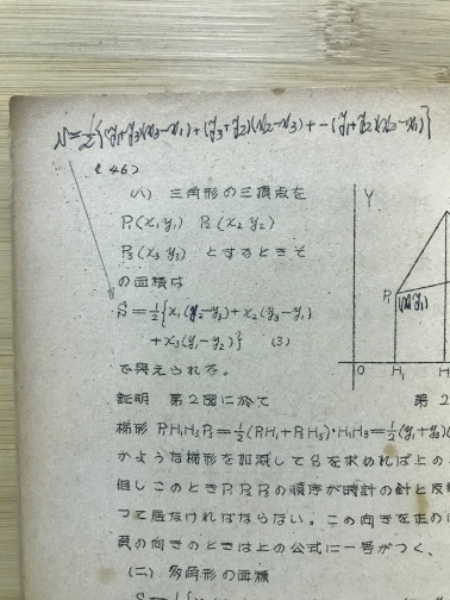 S=½{(y₁+y₃)(x₃-x₁)+(y₃+y₂)(x₂-x₃)+-(y₁+y₂)(x₂-x₁)}
(46)
(ハ) 三角形の三頂点を
P₁(x₁y₁) P₂(x₂y₂)
P₃(x₃y₃) とするときそ
の面積は
S=½{x₁(y₂-y₃)+x₂(y₃-y₁)
+x₃(y₁-y₂)} (3)
で与えられる。
Y
P₁
(x₁y₁)
O H₁ H
証明 第2図に於て
第2
梯形 P₁H₁H₃P₃=½(P₁H₁+P₃H₃)・H₁H₃=½(y₁+y₃)(
かような梯形を加減してSを求めれば上の
但しこのときP₁P₂P₃の順序が時計の針と反
つて居なければならない。この向きを正の
負の向きのときは上の公式に一号がつく、
(二) 多角形の面積